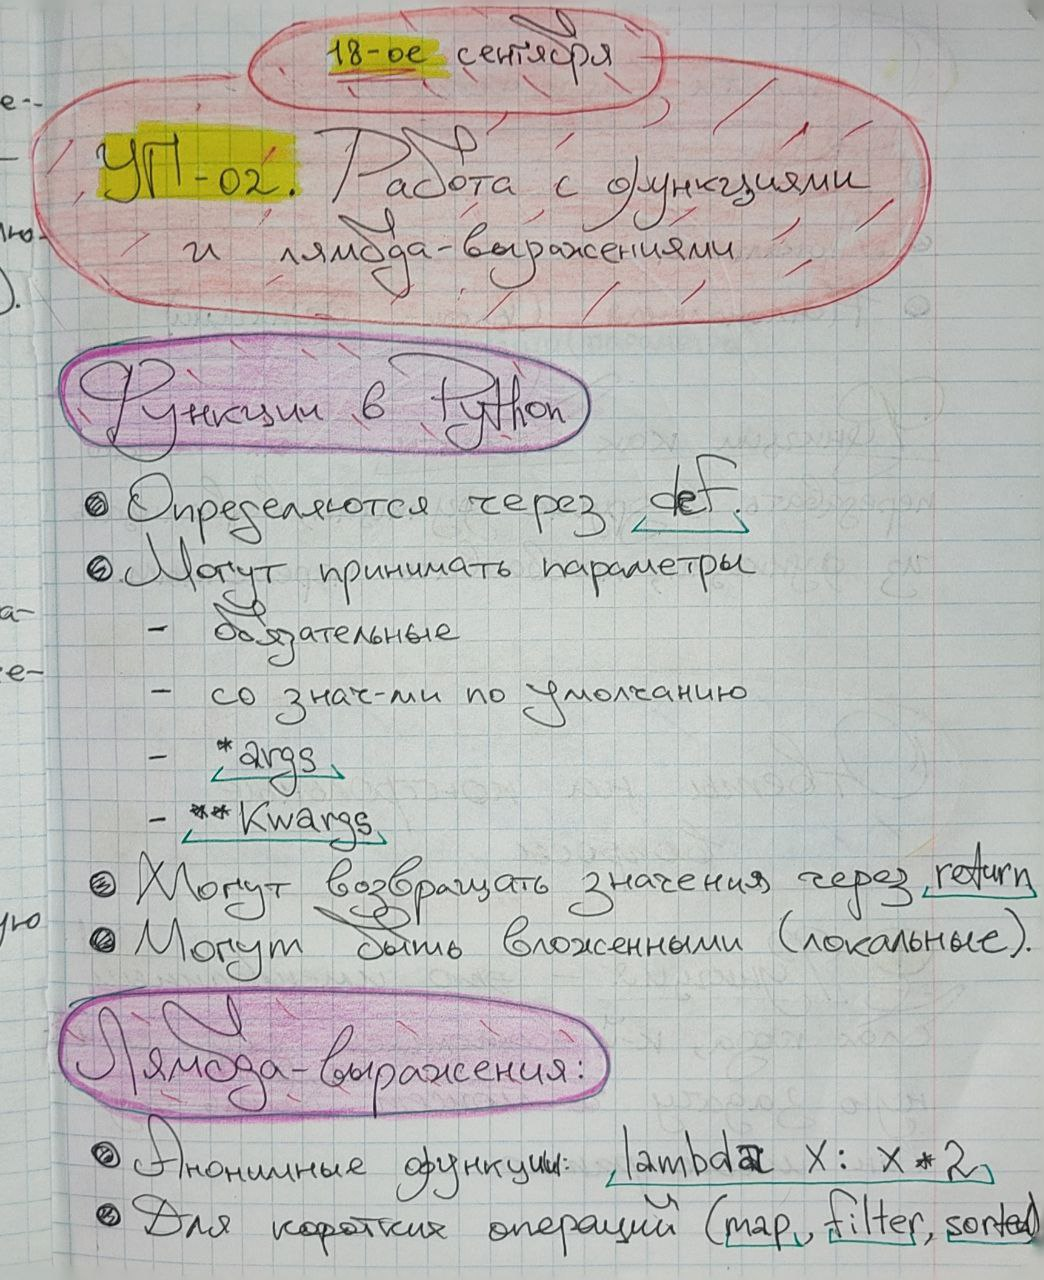 18-ое сентября
УП-02. Работа с функциями
и лямбда-выражениями
Функции в Python
Определяются через def.
Могут принимать параметры
- обязательные
- со знач-ми по умолчанию
- *args
- **kwargs
Могут возвращать значения через return
Могут быть вложенными (локальные).
Лямбда-выражения:
Анонимные функции: lambda x: x*2
Для коротких операций (map, filter, sorted)